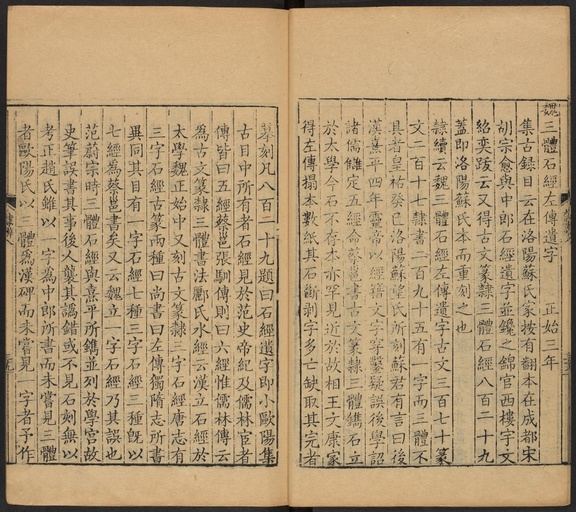 魏三體石經左傳遺字　正始三年
集古録目云在洛陽蘇氏家按有翻本在成都宋
胡宗愈與中郎石經遺字並鑱之錦官西樓宇文
紹奕跋云又得古文篆隸三體石經八百二十九
蓋即洛陽蘇氏本而重刻之也
隸續云魏三體石經左傳遺字古文三百七十篆
文二百十七隸書二百九十五有一字而三體不
具者皇祐癸巳洛陽蘇望氏所刻蘇君有言曰後
漢熹平四年靈帝以經籍文字穿鑿疑誤後學詔
諸儒讎定五經命蔡邕書古文篆隸三體鐫石立
於太學今石不存本亦罕見近於故相王文康家
得左傳搨本數紙其石斷剥字多亡缺取其完者
摹刻凡八百二十九題曰石經遺字即小歐陽集
古目中所有者石經見於范史帝紀及儒林宦者
傳皆曰五經蔡邕張馴傳則曰六經惟儒林傳云
為古文篆隸三體書法酈氏水經云漢立石經於
太學魏正始中又刻古文篆隸三字石經唐志有
三字石經古篆兩種曰尚書曰左傳獨隋志所書
異同其目有一字石經七種三字石經三種旣以
七經為蔡邕書矣又云魏立一字石經乃其誤也
范蔚宗時三體石經與熹平所鐫並列於學宫故
史筆誤書其事後人襲其譌錯或不見石刻無以
考正趙氏雖以一字為中郎所書而未嘗見三體
者歐陽氏以三體為漢碑而未嘗見一字者予作